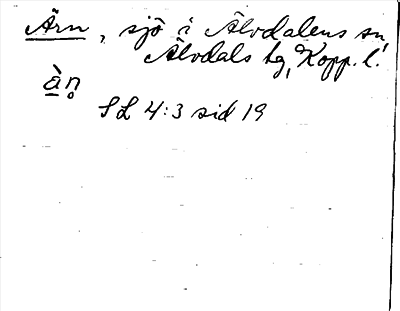 Ärn, sjö i Älvdalens sn,
Älvdals tg, Kopp. l.
àn̥
SL 4:3 sid 19